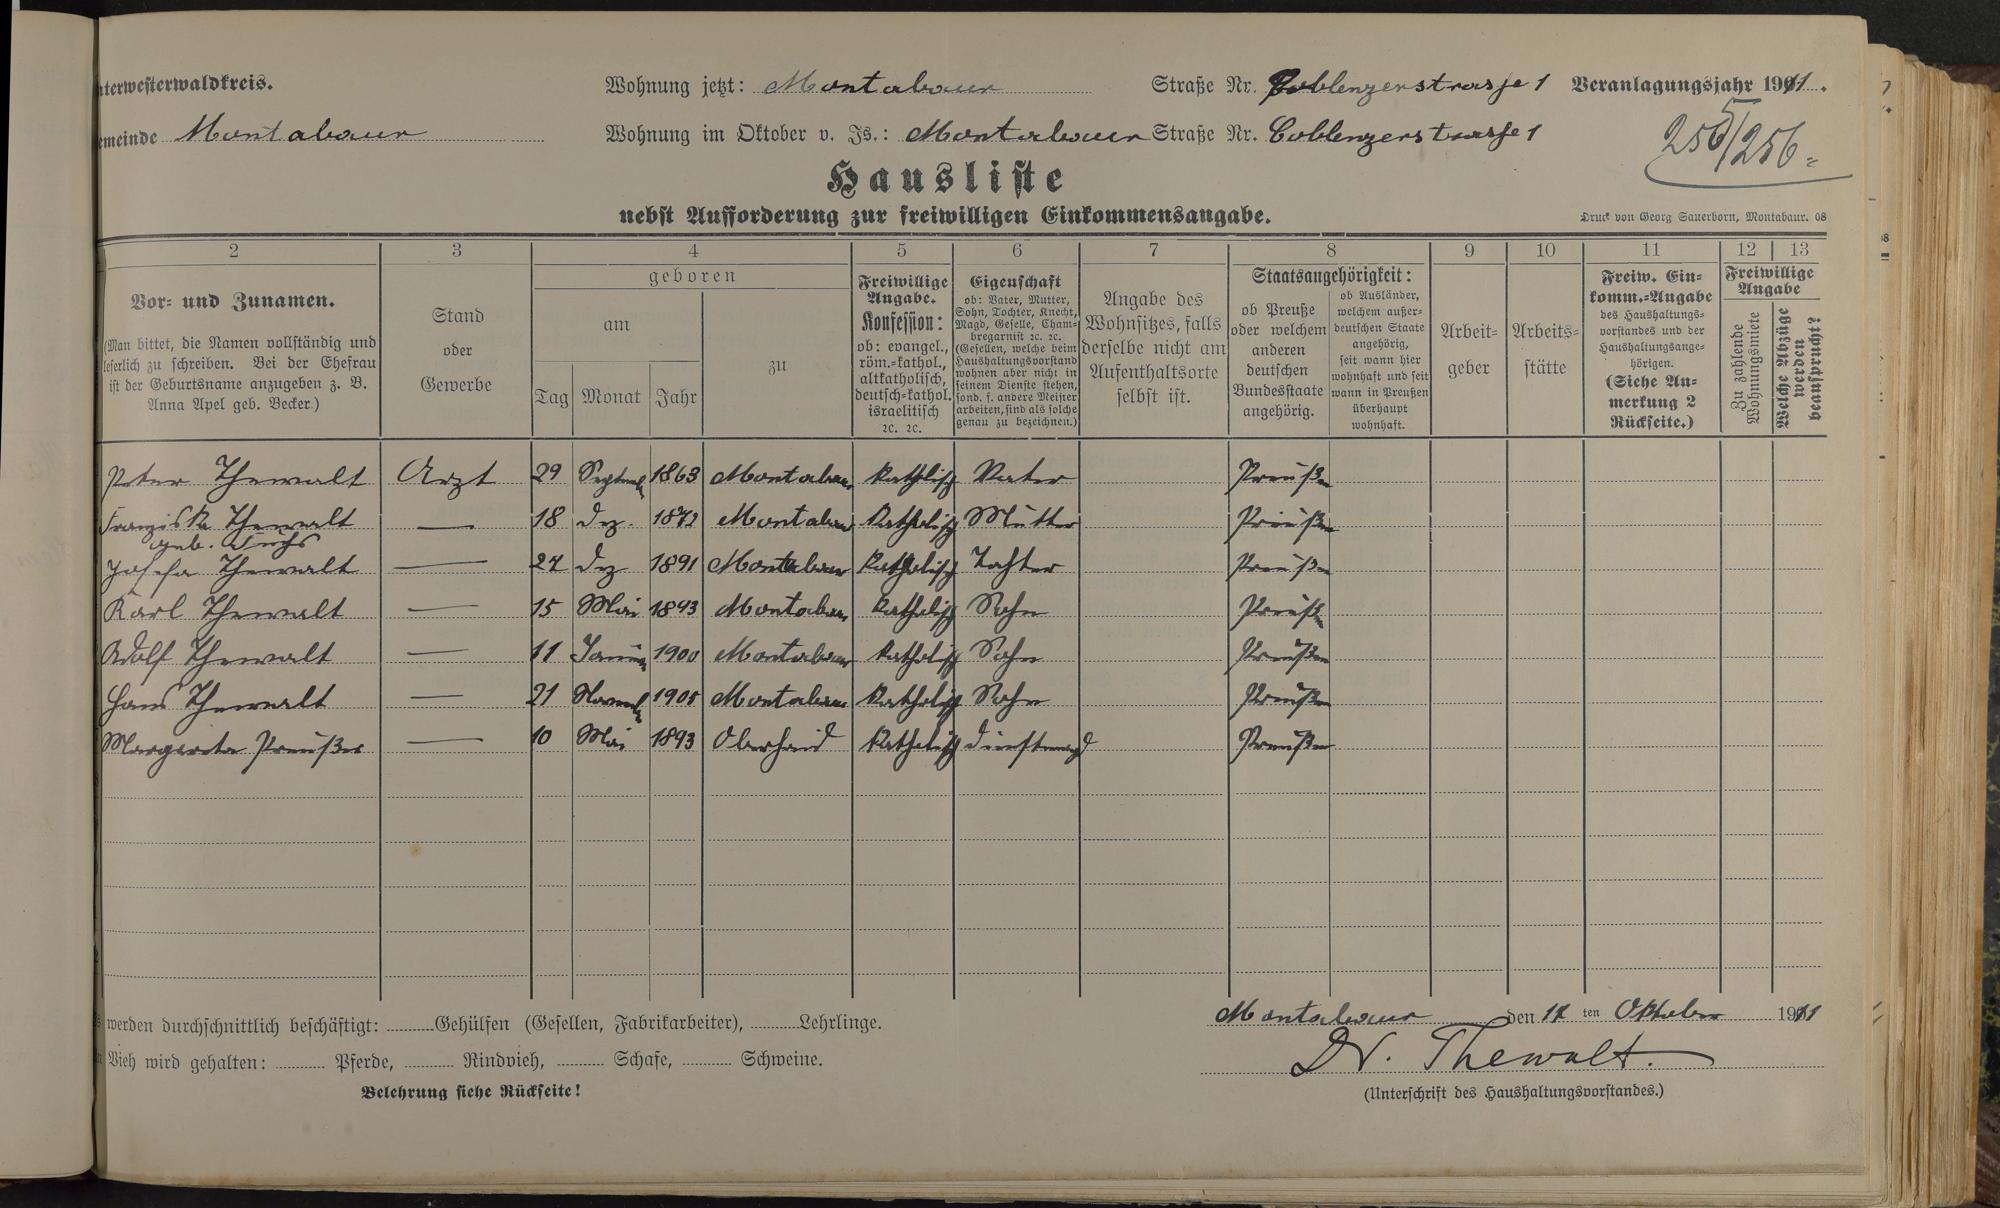 nterwesterwaldkreis.
Wohnung jetzt: Montabaur Straße Nr. Coblenzerstrasse 1 Veranlagungsjahr 1911.
emeinde Montabaur
Wohnung im Oktober v. Js.: Montabaur Straße Nr. Coblenzerstrasse 1
/256
Hausliste
nebst Aufforderung zur freiwilligen Einkommensangabe.
Druck von Georg Sauerborn, Montabaur. 08
2 3 4 5 6 7 8 9 10 11 12 13
Vor- und Zunamen.
(Man bittet, die Namen vollständig und
leserlich zu schreiben. Bei der Ehefrau
ist der Geburtsname anzugeben z. B.
Anna Apel geb. Becker.)
Stand
oder
Gewerbe
geboren
am
Tag Monat Jahr
zu
Freiwillige
Angabe.
Konfession:
ob: evangel.,
röm.-kathol.,
altkatholisch,
deutsch-kathol.
israelitisch
ꝛc. ꝛc.
Eigenschaft
ob: Vater, Mutter,
Sohn, Tochter, Knecht,
Magd, Geselle, Cham-
bregarnist ꝛc. ꝛc.
(Gesellen, welche beim
Haushaltungsvorstand
wohnen aber nicht in
seinem Dienste stehen,
sond. f. andere Meister
arbeiten, sind als solche
genau zu bezeichnen.)
Angabe des
Wohnsitzes, falls
derselbe nicht am
Aufenthaltsorte
selbst ist.
Staatsangehörigkeit:
ob Preuße
oder welchem
anderen
deutschen
Bundesstaate
angehörig.
ob Ausländer,
welchem außer-
deutschen Staate
angehörig,
seit wann hier
wohnhaft und seit
wann in Preußen
überhaupt
wohnhaft.
Arbeit-
geber
Arbeits-
stätte
Freiw. Ein-
komm.-Angabe
des Haushaltungs-
vorstandes und der
Haushaltungsange-
hörigen.
(Siehe An-
merkung 2
Rückseite.)
Freiwillige
Angabe
Zu zahlende
Wohnungsmiete
Welche Abzüge
werden
beansprucht?
Peter Thewalt Arzt 29 Septemb 1863 Montabaur katholisch Vater Preußen
Franziska Thewalt — 18 Dez. 1872 Montabaur katholisch Mutter Preußen
geb.
Josefa Thewalt — Dez 1891 Montabaur katholisch Tochter Preußen
Karl Thewalt — 15 Mai 1893 Montabaur katholisch Sohn Preußen
Adolf Thewalt — 11 Januar 1900 Montabaur katholisch Sohn Preußen
Hans Thewalt — 21 Novemb Montabaur katholisch Sohn Preußen
Margareta Preußer — 10 Mai 1893 Oberhaid katholisch Dienstmagd Preußen
werden durchschnittlich beschäftigt: Gehülfen (Gesellen, Fabrikarbeiter), Lehrlinge.
Vieh wird gehalten: Pferde, Rindvieh, Schafe, Schweine.
Belehrung siehe Rückseite!
Montabaur den ten Oktober 1911
Dr. Thewalt.
(Unterschrift des Haushaltungsvorstandes.)